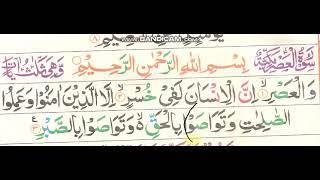 www.BANDICAM.com
سُوْرَةُ الْعَصْرِ مَكِّيَّةٌ بِسْمِ اللّٰهِ الرَّحْمٰنِ الرَّحِيْمِ وَهِيَ ثَلٰثُ اٰيَاتٍ
وَالْعَصْرِ ۙ۱ اِنَّ الْاِنْسَانَ لَفِيْ خُسْرٍ ۙ۲ اِلَّا الَّذِيْنَ اٰمَنُوْا وَعَمِلُوا
الصّٰلِحٰتِ وَتَوَاصَوْا بِالْحَقِّ ۙ۬ وَتَوَاصَوْا بِالصَّبْرِ ۳